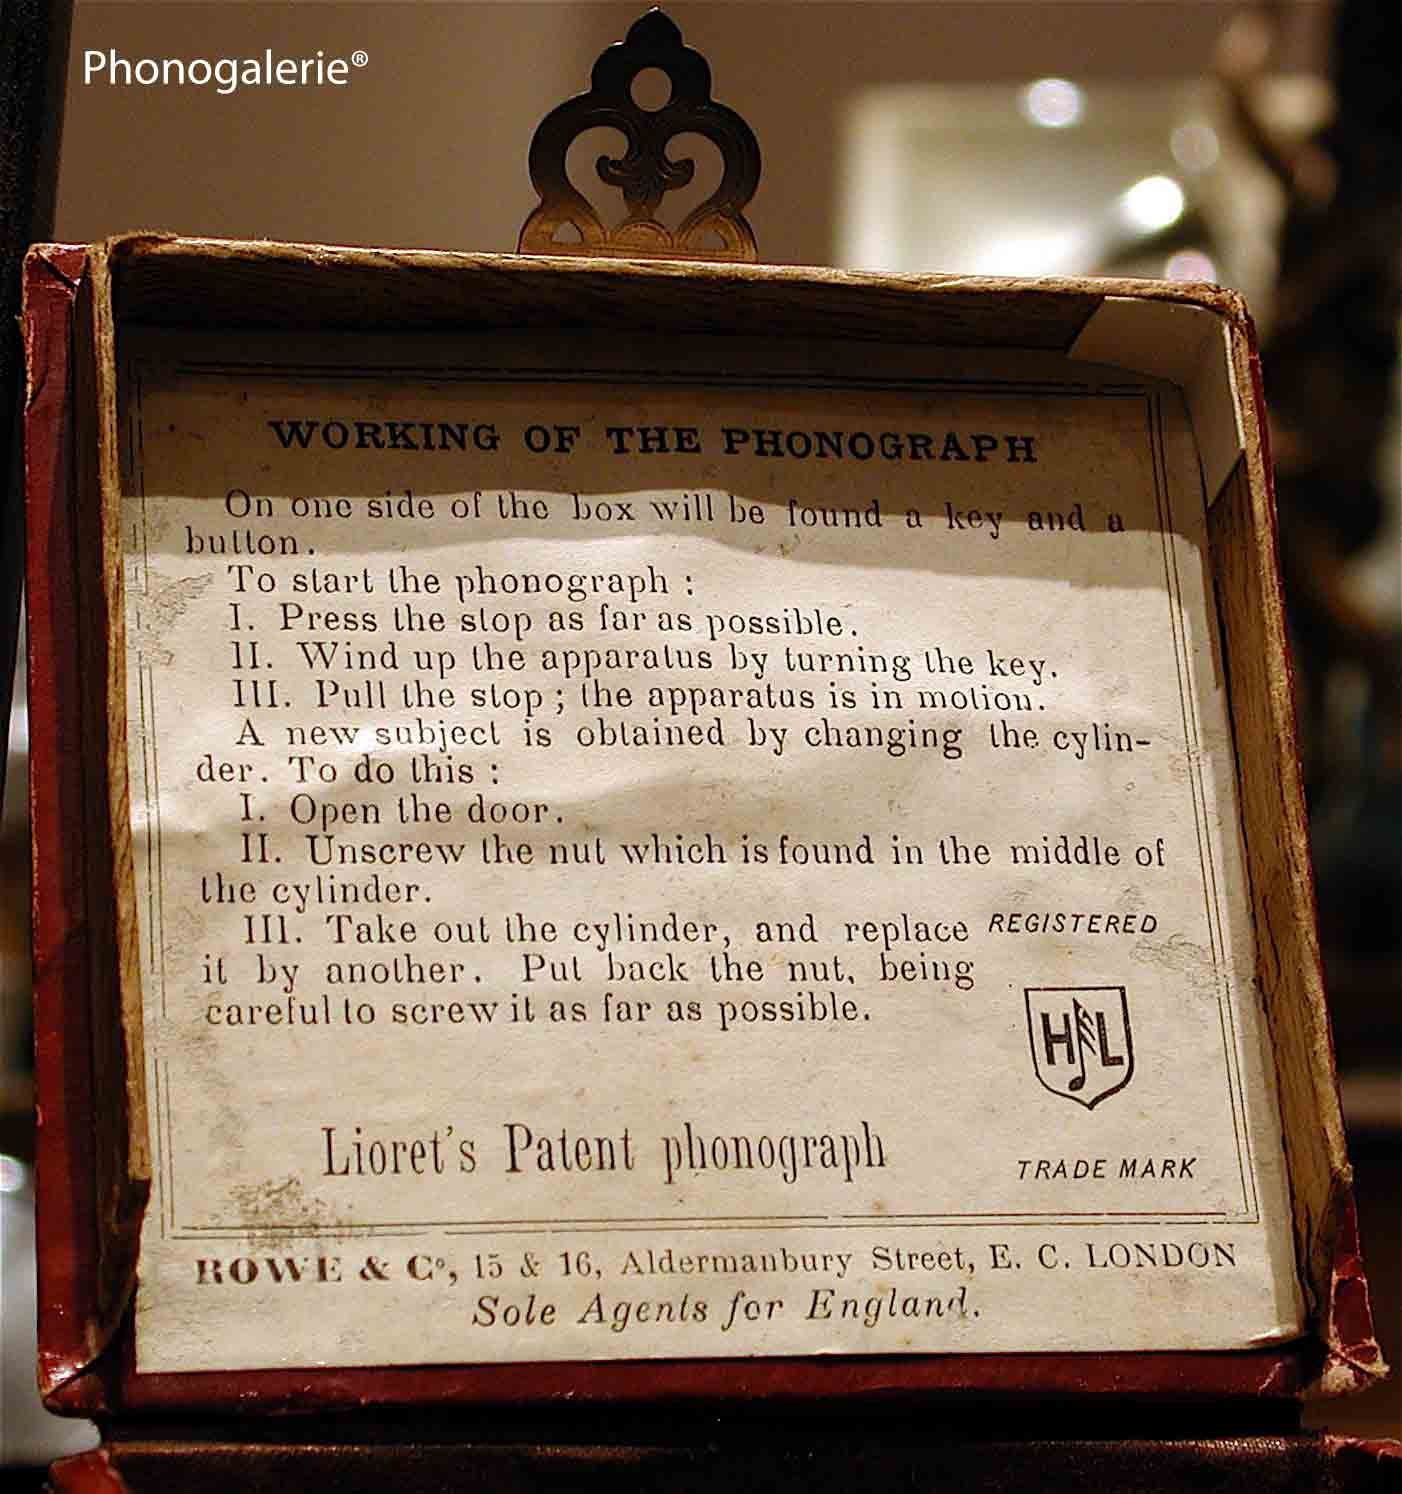 Phonogalerie®
WORKING OF THE PHONOGRAPH
On one side of the box will be found a key and a
button.
To start the phonograph :
I. Press the stop as far as possible.
II. Wind up the apparatus by turning the key.
III. Pull the stop ; the apparatus is in motion.
A new subject is obtained by changing the cylin-
der. To do this :
I. Open the door.
II. Unscrew the nut which is found in the middle of
the cylinder.
III. Take out the cylinder, and replace
it by another. Put back the nut, being
careful to screw it as far as possible.
REGISTERED
H L
Lioret's Patent phonograph
TRADE MARK
ROWE & Cº, 15 & 16, Aldermanbury Street, E. C. LONDON
Sole Agents for England.